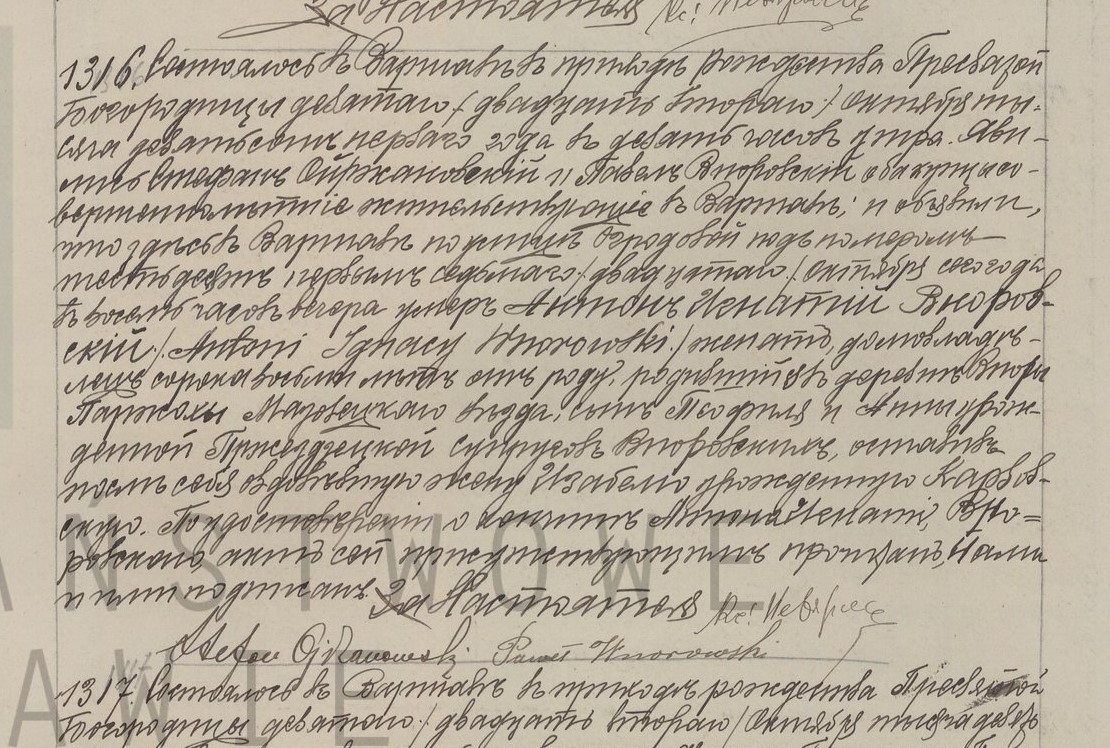 За Настоятеля Кс:
1316. Состоялось въ Варшавѣ въ приходѣ рождества Пресвятой
Богородицы девятаго /двадцать втораго/ Октября ты-
сяча девятьсотъ перваго года въ девять часовъ утра. Яви-
лись Стефанъ Ойржановскій и Павелъ Вноровскій оба купцы со-
вершеннолѣтніе жительствующіе въ Варшавѣ, и объявили,
что здѣсь въ Варшавѣ по улицѣ Огродовой подъ номеромъ
шестьдесятъ первымъ седьмаго /двадцатаго/ Октября сего года
въ восемь часовъ вечера умеръ Антонъ Игнатій Вноров-
скій /Antoni Ignacy Wnorowski/ женатъ, домовладѣ-
лецъ сорока восьми лѣтъ отъ роду, родившійся въ деревнѣ Вноры
Мазовецкаго уѣзда, сынъ Теофиля и Анны урож-
денной Пржездзецкой супруговъ Вноровскихъ, оставивъ
послѣ себя овдовѣвшую жену Изабелю урожденную Карвов-
скую. По удостовѣреніи о кончинѣ Антона Игнатія Вно-
ровскаго, актъ сей присутствующимъ прочитанъ, Нами
и ими подписанъ. За Настоятеля Кс:
Stefan Ojrzanowski Paweł Wnorowski
1317. Состоялось въ Варшавѣ въ приходѣ рождества Пресвятой
Богородицы девятаго /двадцать втораго/ Октября тысяча девять
AŃSTWOWE
AWIE